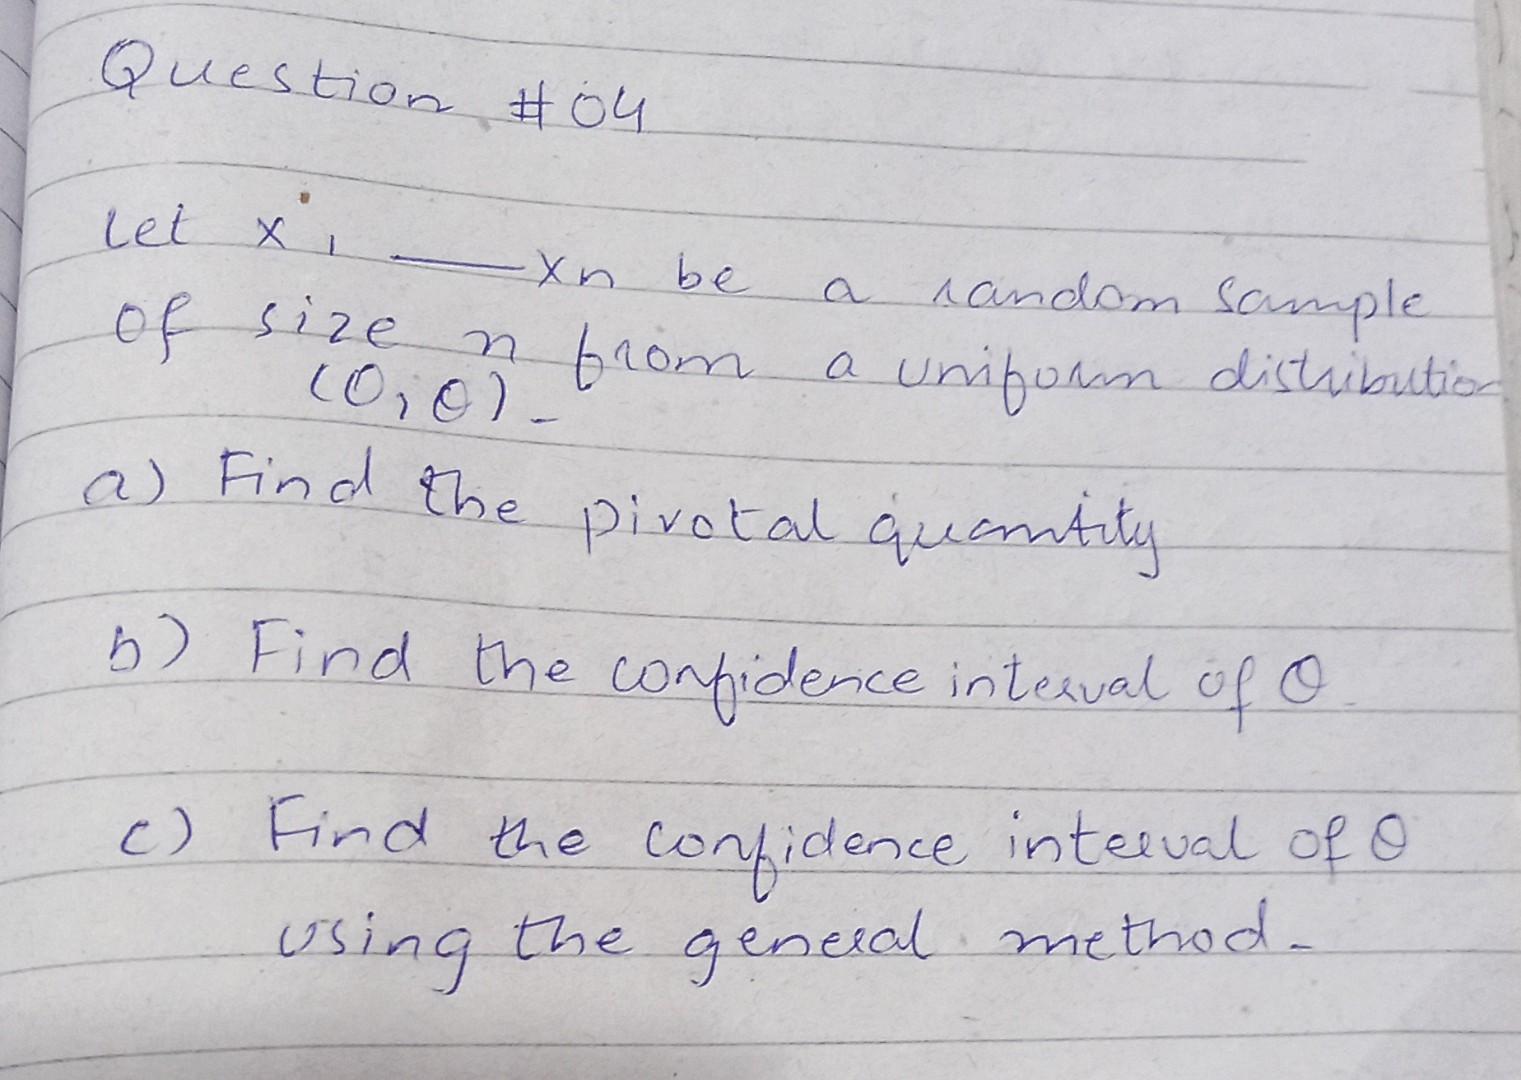 Question #04
Let x1, — xn be a random sample
of size n from a uniform distribution
(0, θ).
a) Find the pivotal quantity
b) Find the confidence interval of θ
c) Find the confidence interval of θ
using the general method.